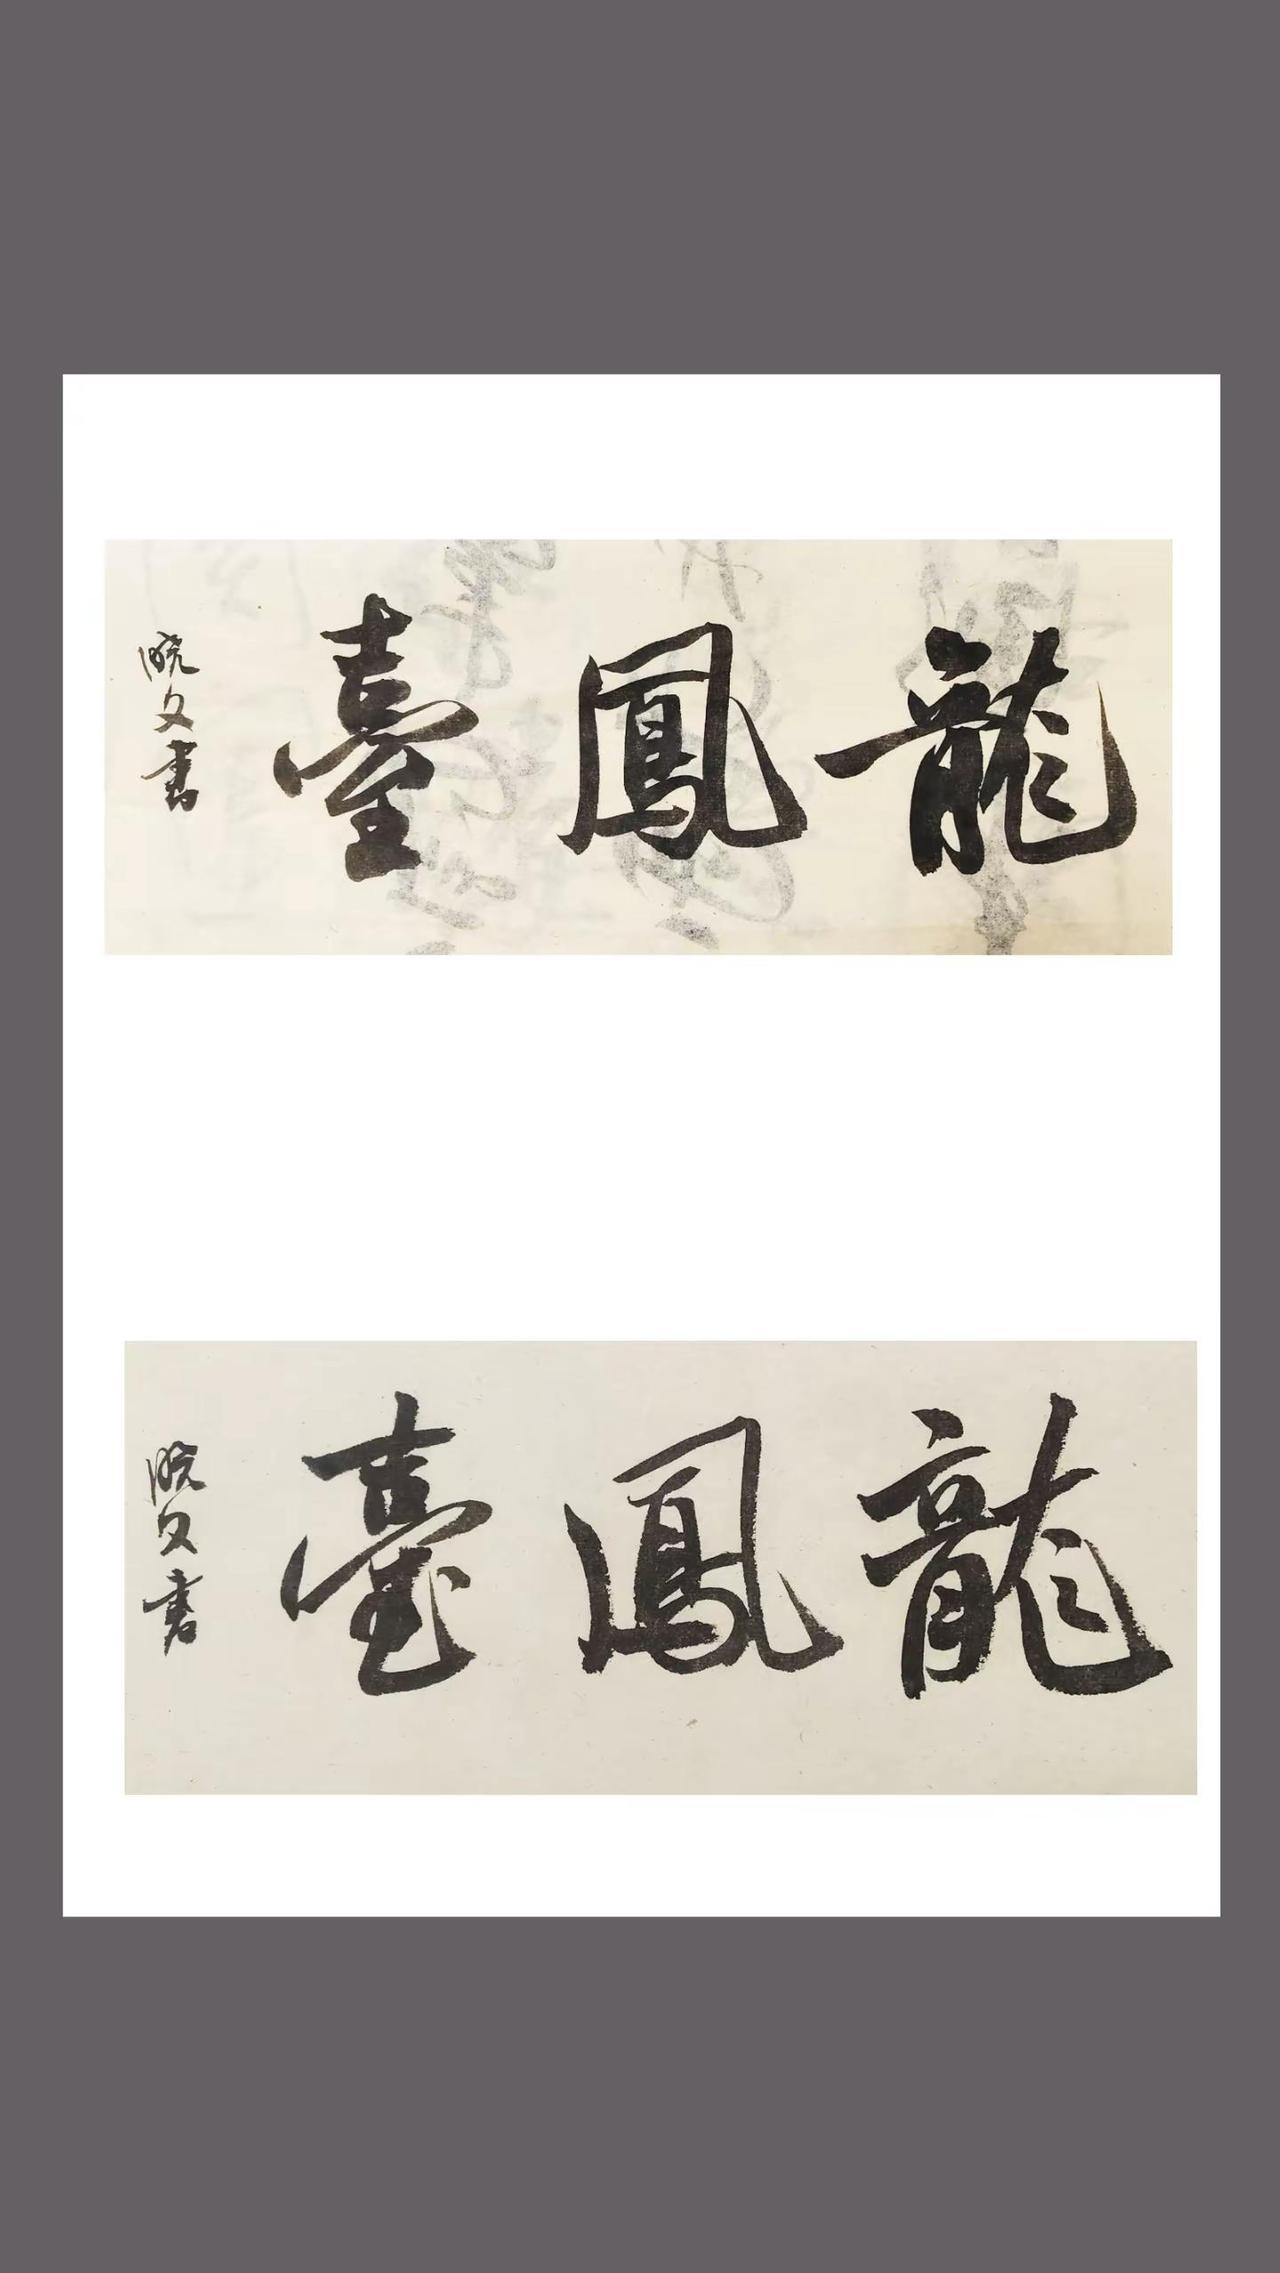 龍鳳臺
晓文書
龍鳳臺
晓文書